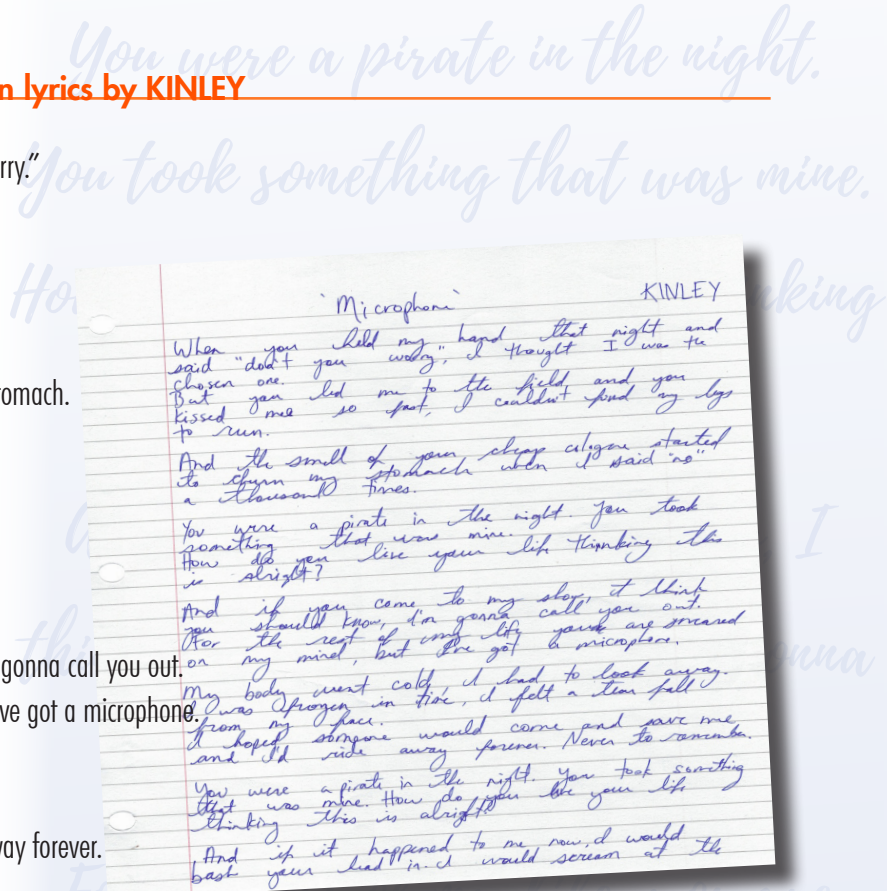 You were a pirate in the night.
n lyrics by KINLEY
rry.”
You took something that was mine.
Ho
nking
tomach.
I
thi
onna
gonna call you out.
ve got a microphone.
way forever.
`Microphone` KINLEY
When you held my hand that night and
said "don't you worry", I thought I was the
chosen one.
But you led me to the field and you
kissed me so fast, I couldn't find my legs
to run.
And the smell of your cheap cologne started
to churn my stomach when I said "no"
a thousand times.
You were a pirate in the night. You took
something that was mine.
How do you live your life thinking this
is alright?
And if you come to my show, I think
you should know, I'm gonna call you out.
For the rest of my life you are smeared
on my mind, but I've got a microphone.
My body went cold, I had to look away.
I was frozen in time, I felt a tear fall
from my face.
I hoped someone would come and save me
and I'd ride away forever. Never to remember.
You were a pirate in the night. You took something
that was mine. How do you live your life
thinking this is alright?
And if it happened to me now, I would
bash your head in. I would scream at the